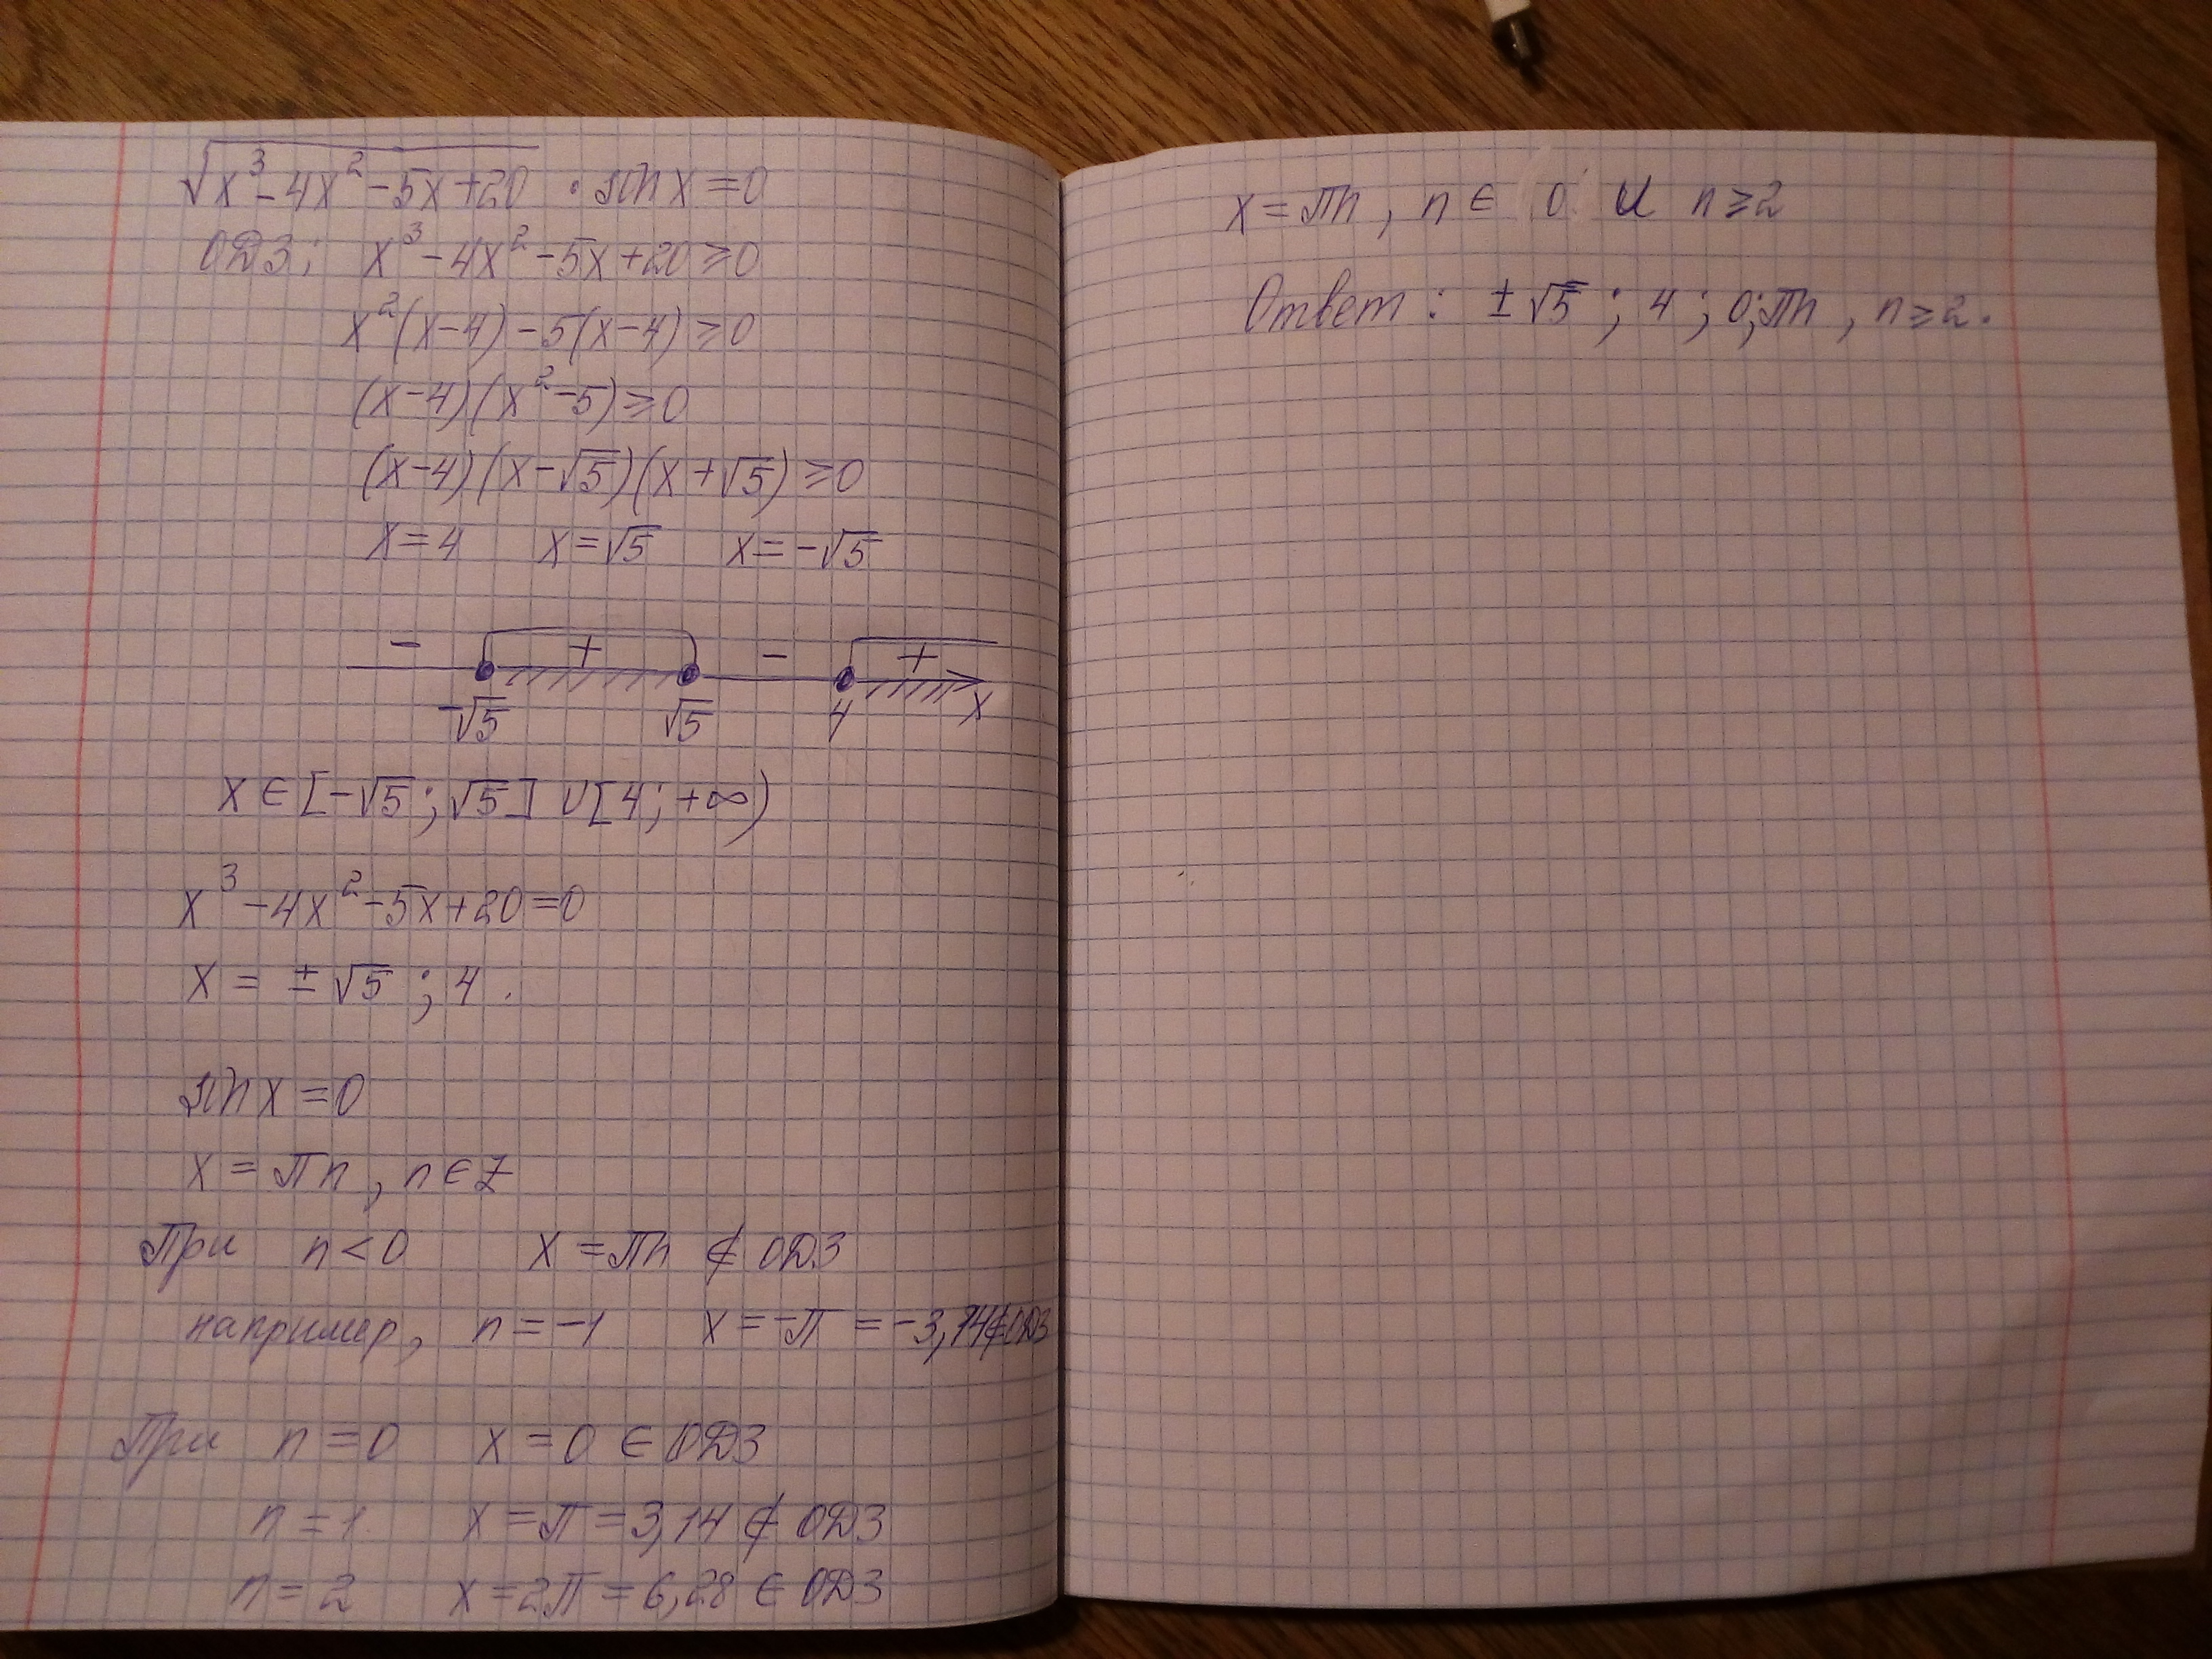 √(x³-4x²-5x+20) · sin x = 0
ОДЗ: x³-4x²-5x+20≥0
x²(x-4)-5(x-4)≥0
(x-4)(x²-5)≥0
(x-4)(x-√5)(x+√5)≥0
x=4 x=√5 x=-√5
- + - +
-√5 √5 4 x
x∈[-√5;√5]∪[4;+∞)
x³-4x²-5x+20=0
x = ±√5; 4.
sin x = 0
x = πn, n∈Z
При n<0 x=πn ∉ ОДЗ
например, n=-1 x=-π=-3,14∉ОДЗ
При n=0 x=0 ∈ ОДЗ
n=1 x=π=3,14 ∉ ОДЗ
n=2 x=2π=6,28 ∈ ОДЗ
x=πn, n∈ 0 и n≥2
Ответ: ±√5; 4; 0; πn, n≥2.